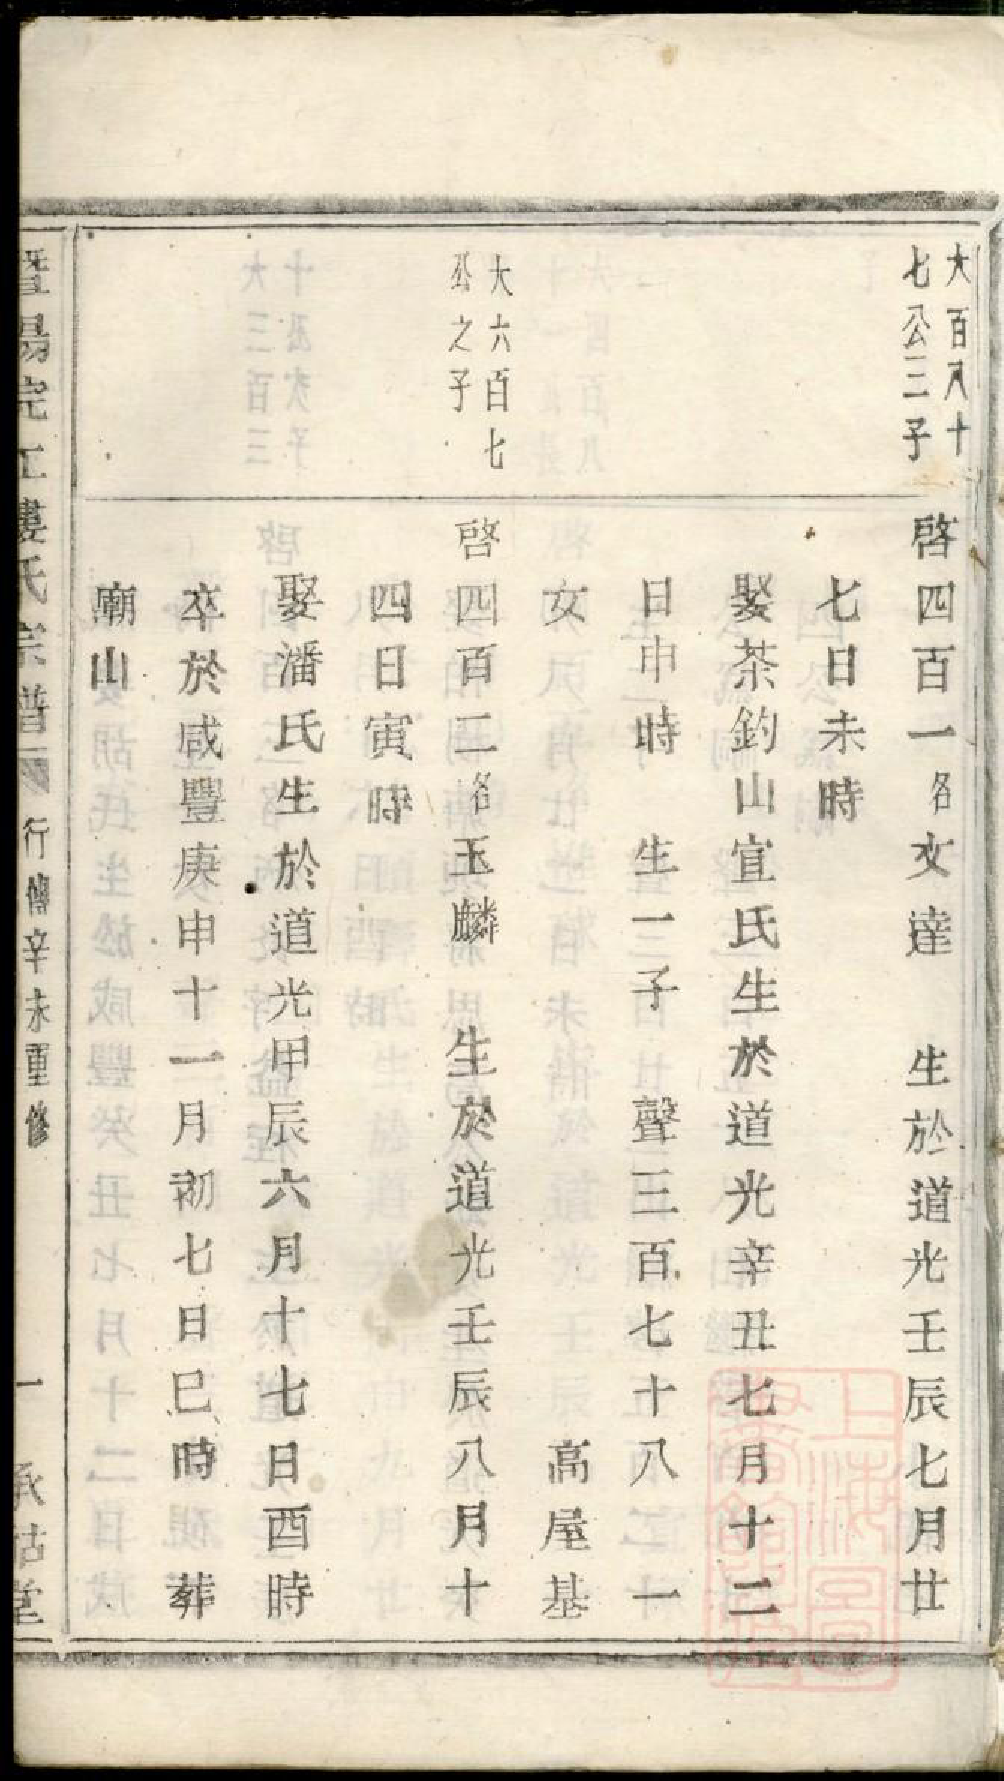 大百八十
七公三子
啓四百一名文達 生於道光壬辰七月廿
七日未時
娶茶釣山宣氏生於道光辛丑七月十二
日申時 生一子 聲三百七十八 一
女 高屋基
大六百七
公之子
啓四百二名玉麟 生於道光壬辰八月十
四日寅時
娶潘氏生於道光甲辰六月十七日酉時
卒於咸豐庚申十一月初七日巳時 葬
廟山
暨陽浣江婁氏宗譜 行傳辛未重修 一 承祜堂